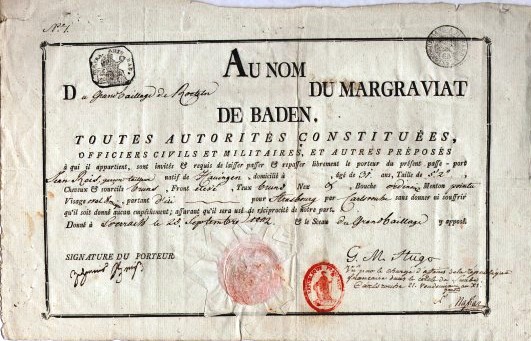 N° 1.
AU NOM
Du Grand Baillage de Roetteln DU MARGRAVIAT
DE BADEN.
TOUTES AUTORITÉS CONSTITUÉES,
OFFICIERS CIVILS ET MILITAIRES, ET AUTRES PRÉPOSÉS
à qui il appartient, sont invités & requis de laisser passer & repasser librement le porteur du présent passe-port
Jean natif de domicilié à âgé de ans, Taille de 5.
Cheveux & sourcils bruns, Front élevé, Yeux bruns, Nez Bouche ordinaire Menton pointu
Visage partant d'ici pour Strasbourg par Carlsrouhe sans donner ou souffrir
qu'il soit donné aucun empêchement; assurant qu'il sera usé de réciprocité de notre part.
Donné à Loerrach le 23 Septembre 1802 & le Sceau du Grand Baillage y apposé.
SIGNATURE DU PORTEUR
G. M. Hugo
Vu par le chargé d'affaires de la république
française dans le cercle de
Carlsrouhe 21. Vendemiaire an XI.